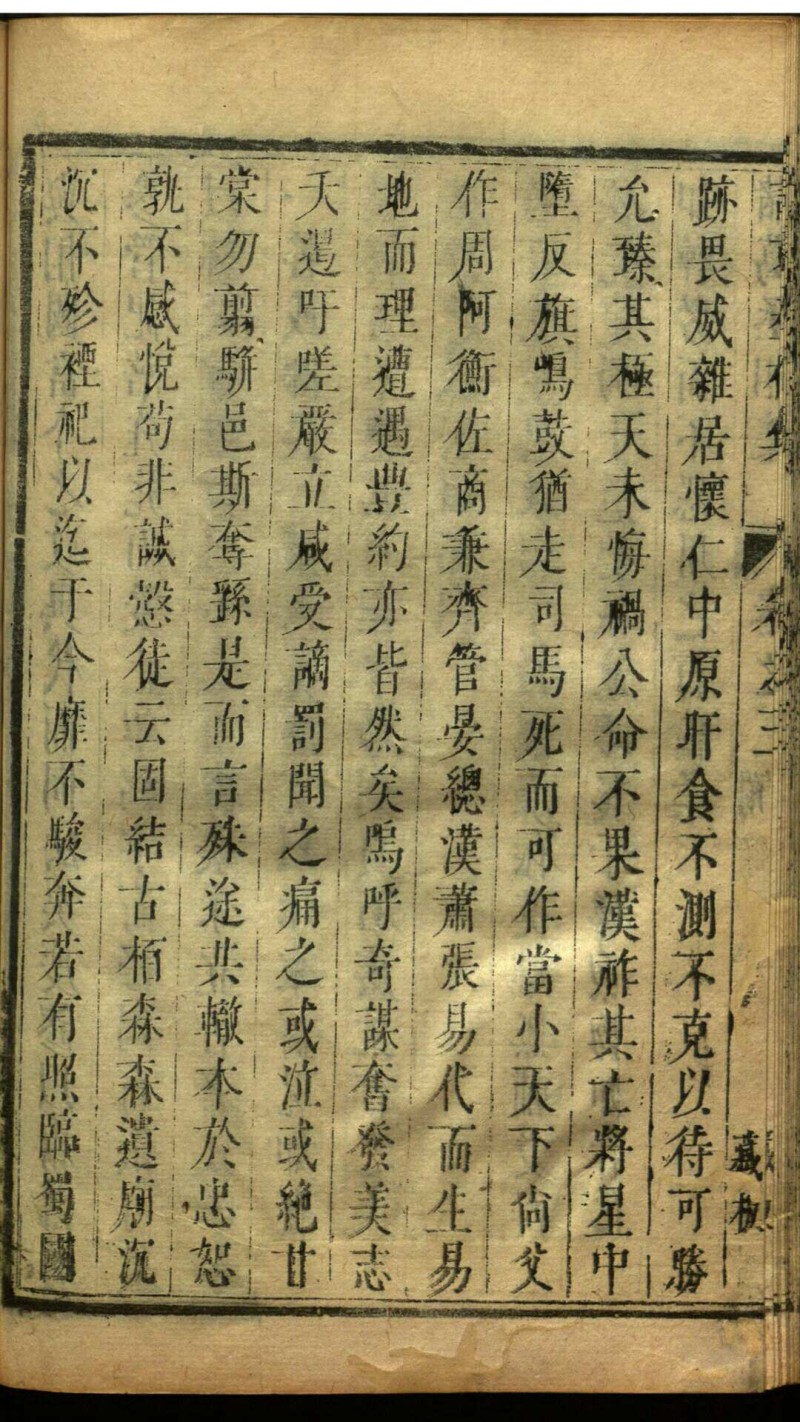 卷之三 藏板
跡畏威雜居懷仁中原旰食不測不克以待可勝
允臻其極天未悔禍公命不果漢祚其亡將星中
墮反旗鳴鼓猶走司馬死而可作當小天下尙父
作周阿衡佐商兼齊管晏總漢蕭張易代而生易
地而理遭遇豊約亦皆然矣嗚呼奇謀奮發美志
夭遏吁嗟嚴立咸受謫罰聞之痛之或泣或絶甘
棠勿翦騈邑斯奪繇是而言殊途共轍本於忠恕
孰不感悅苟非誠慤徒云固結古栢森森遺廟沉
沉不殄禋祀以迄于今靡不駿奔若有照臨蜀國